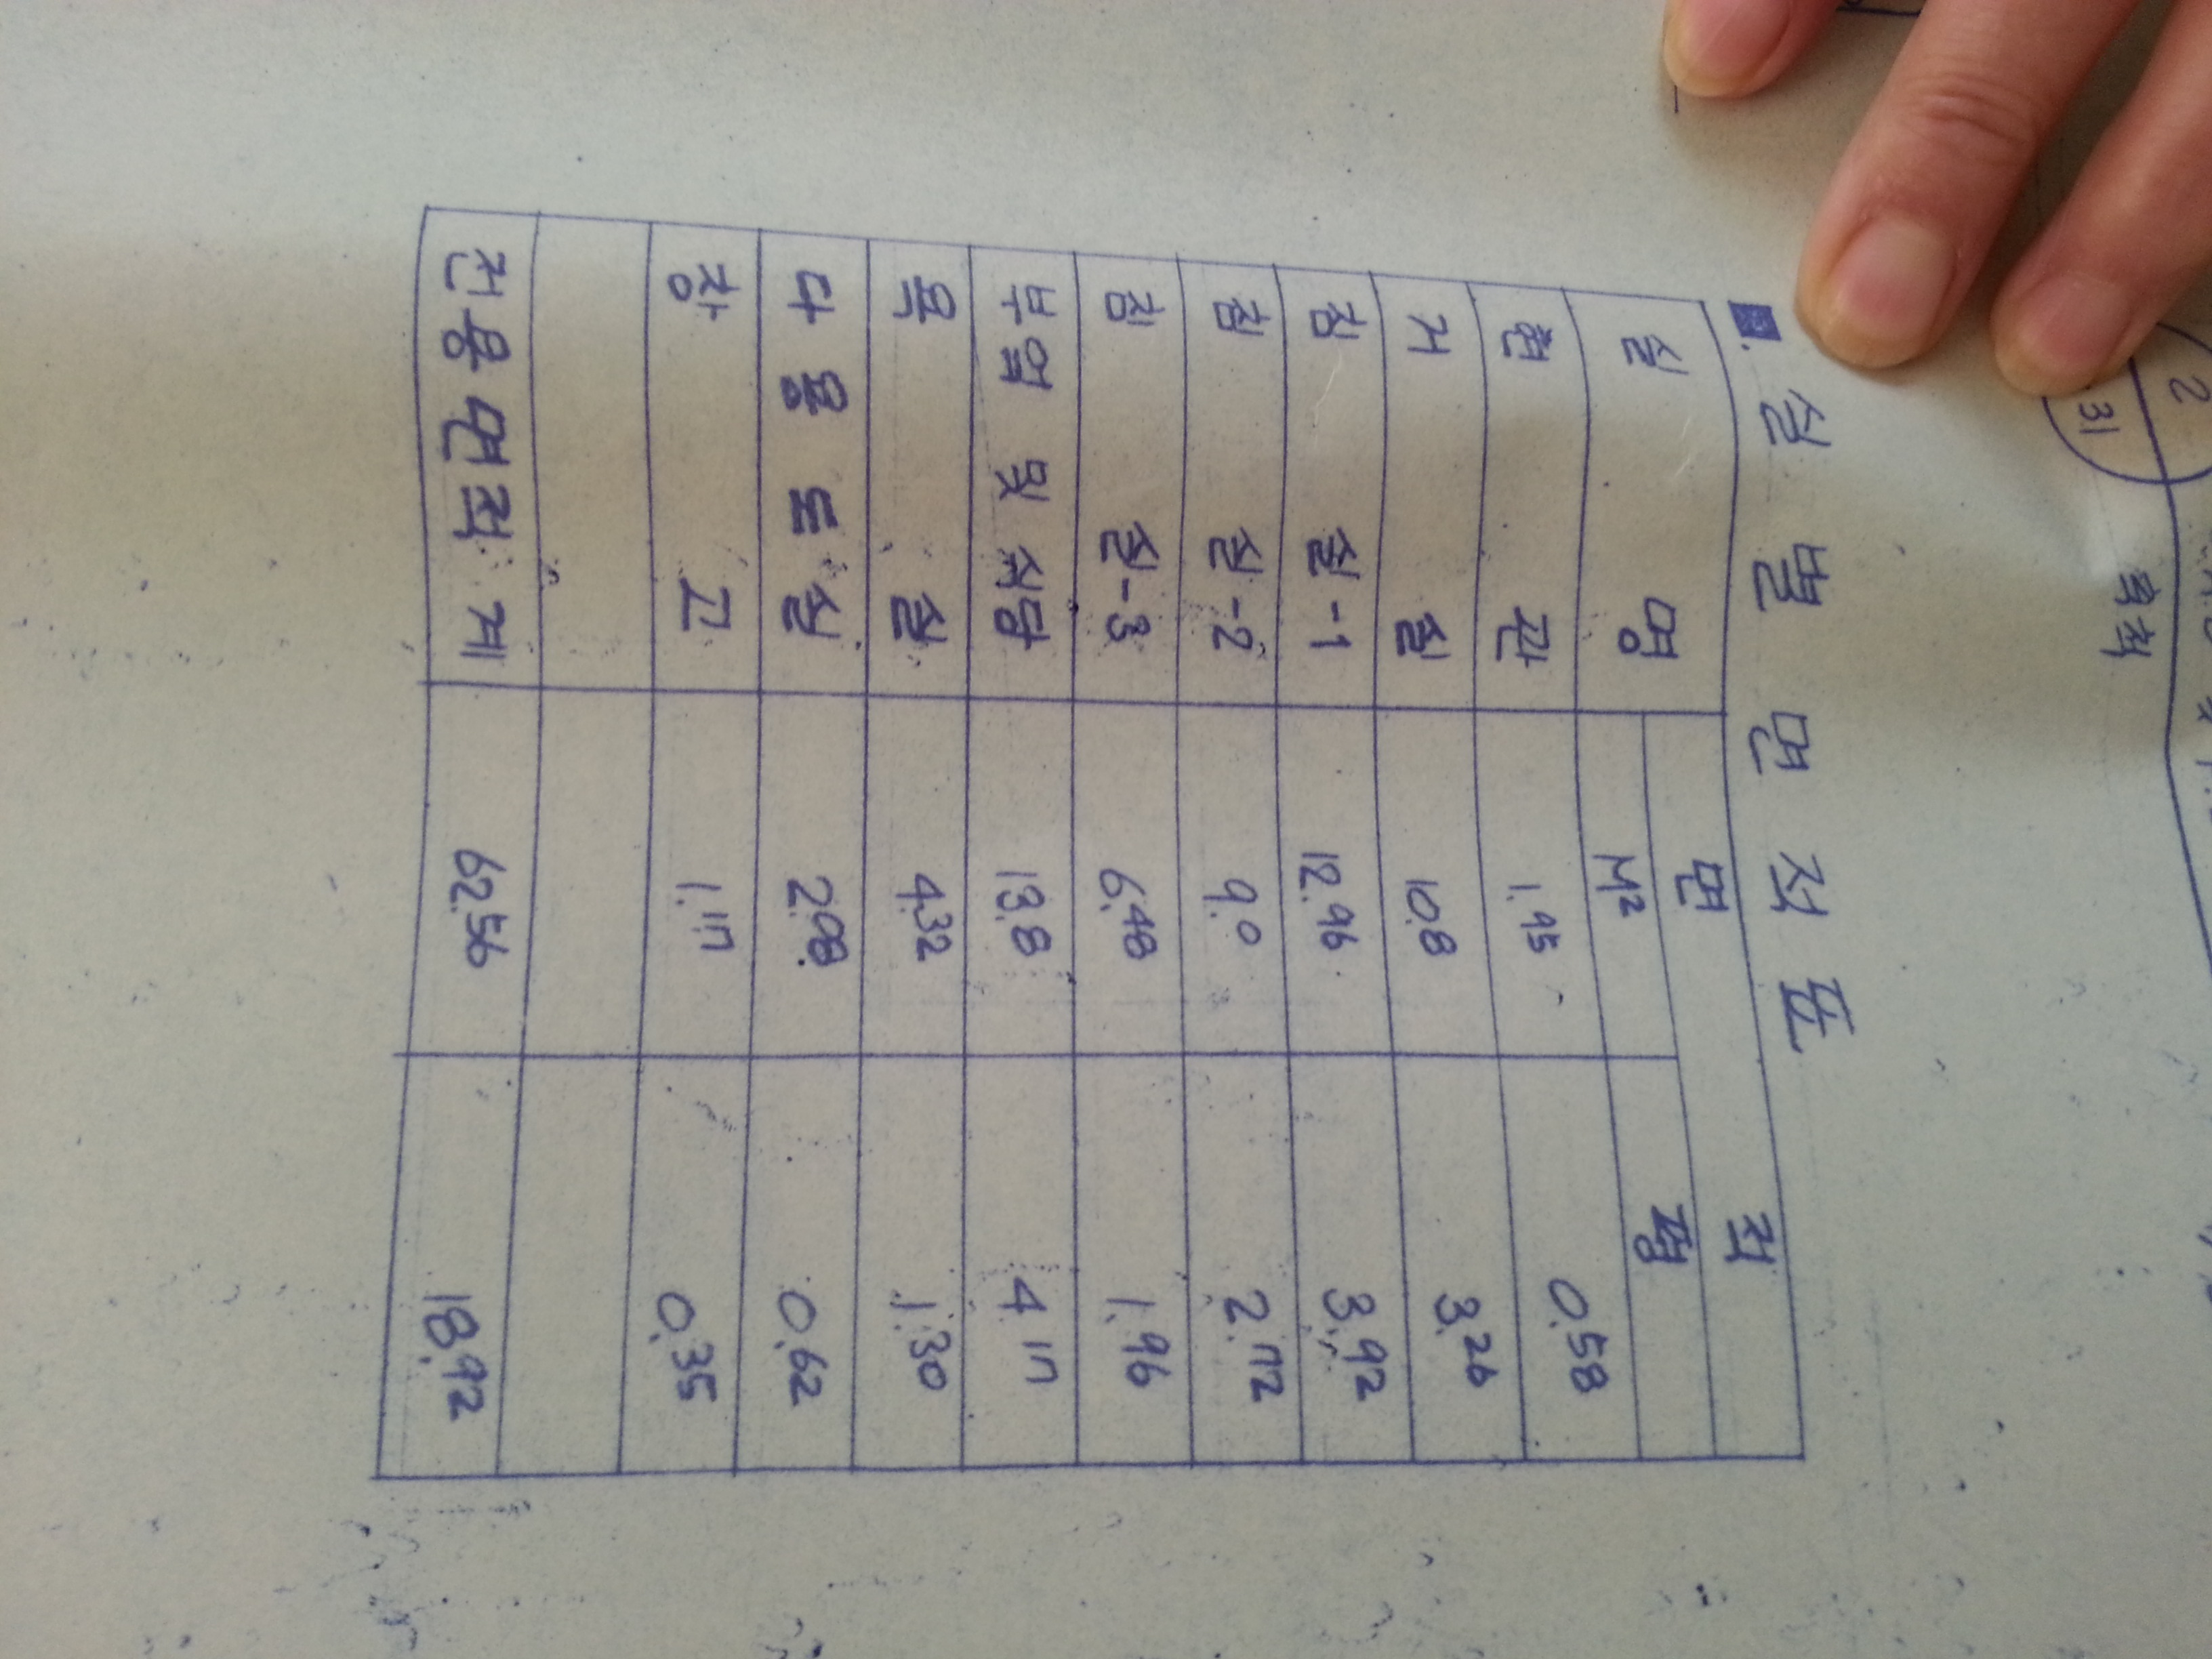 ■. 실 별 면 적 표
실 명 면 적
M² 평
현 관 1.95 0.58
거 실 10.8 3.26
침 실-1 12.96 3.92
침 실-2 9.0 2.72
침 실-3 6.48 1.96
부엌 및 식당 13.8 4.17
욕 실 4.32 1.30
다용도실 2.08 0.62
창 고 1.17 0.35
전용면적 계 62.56 18.92
2
31